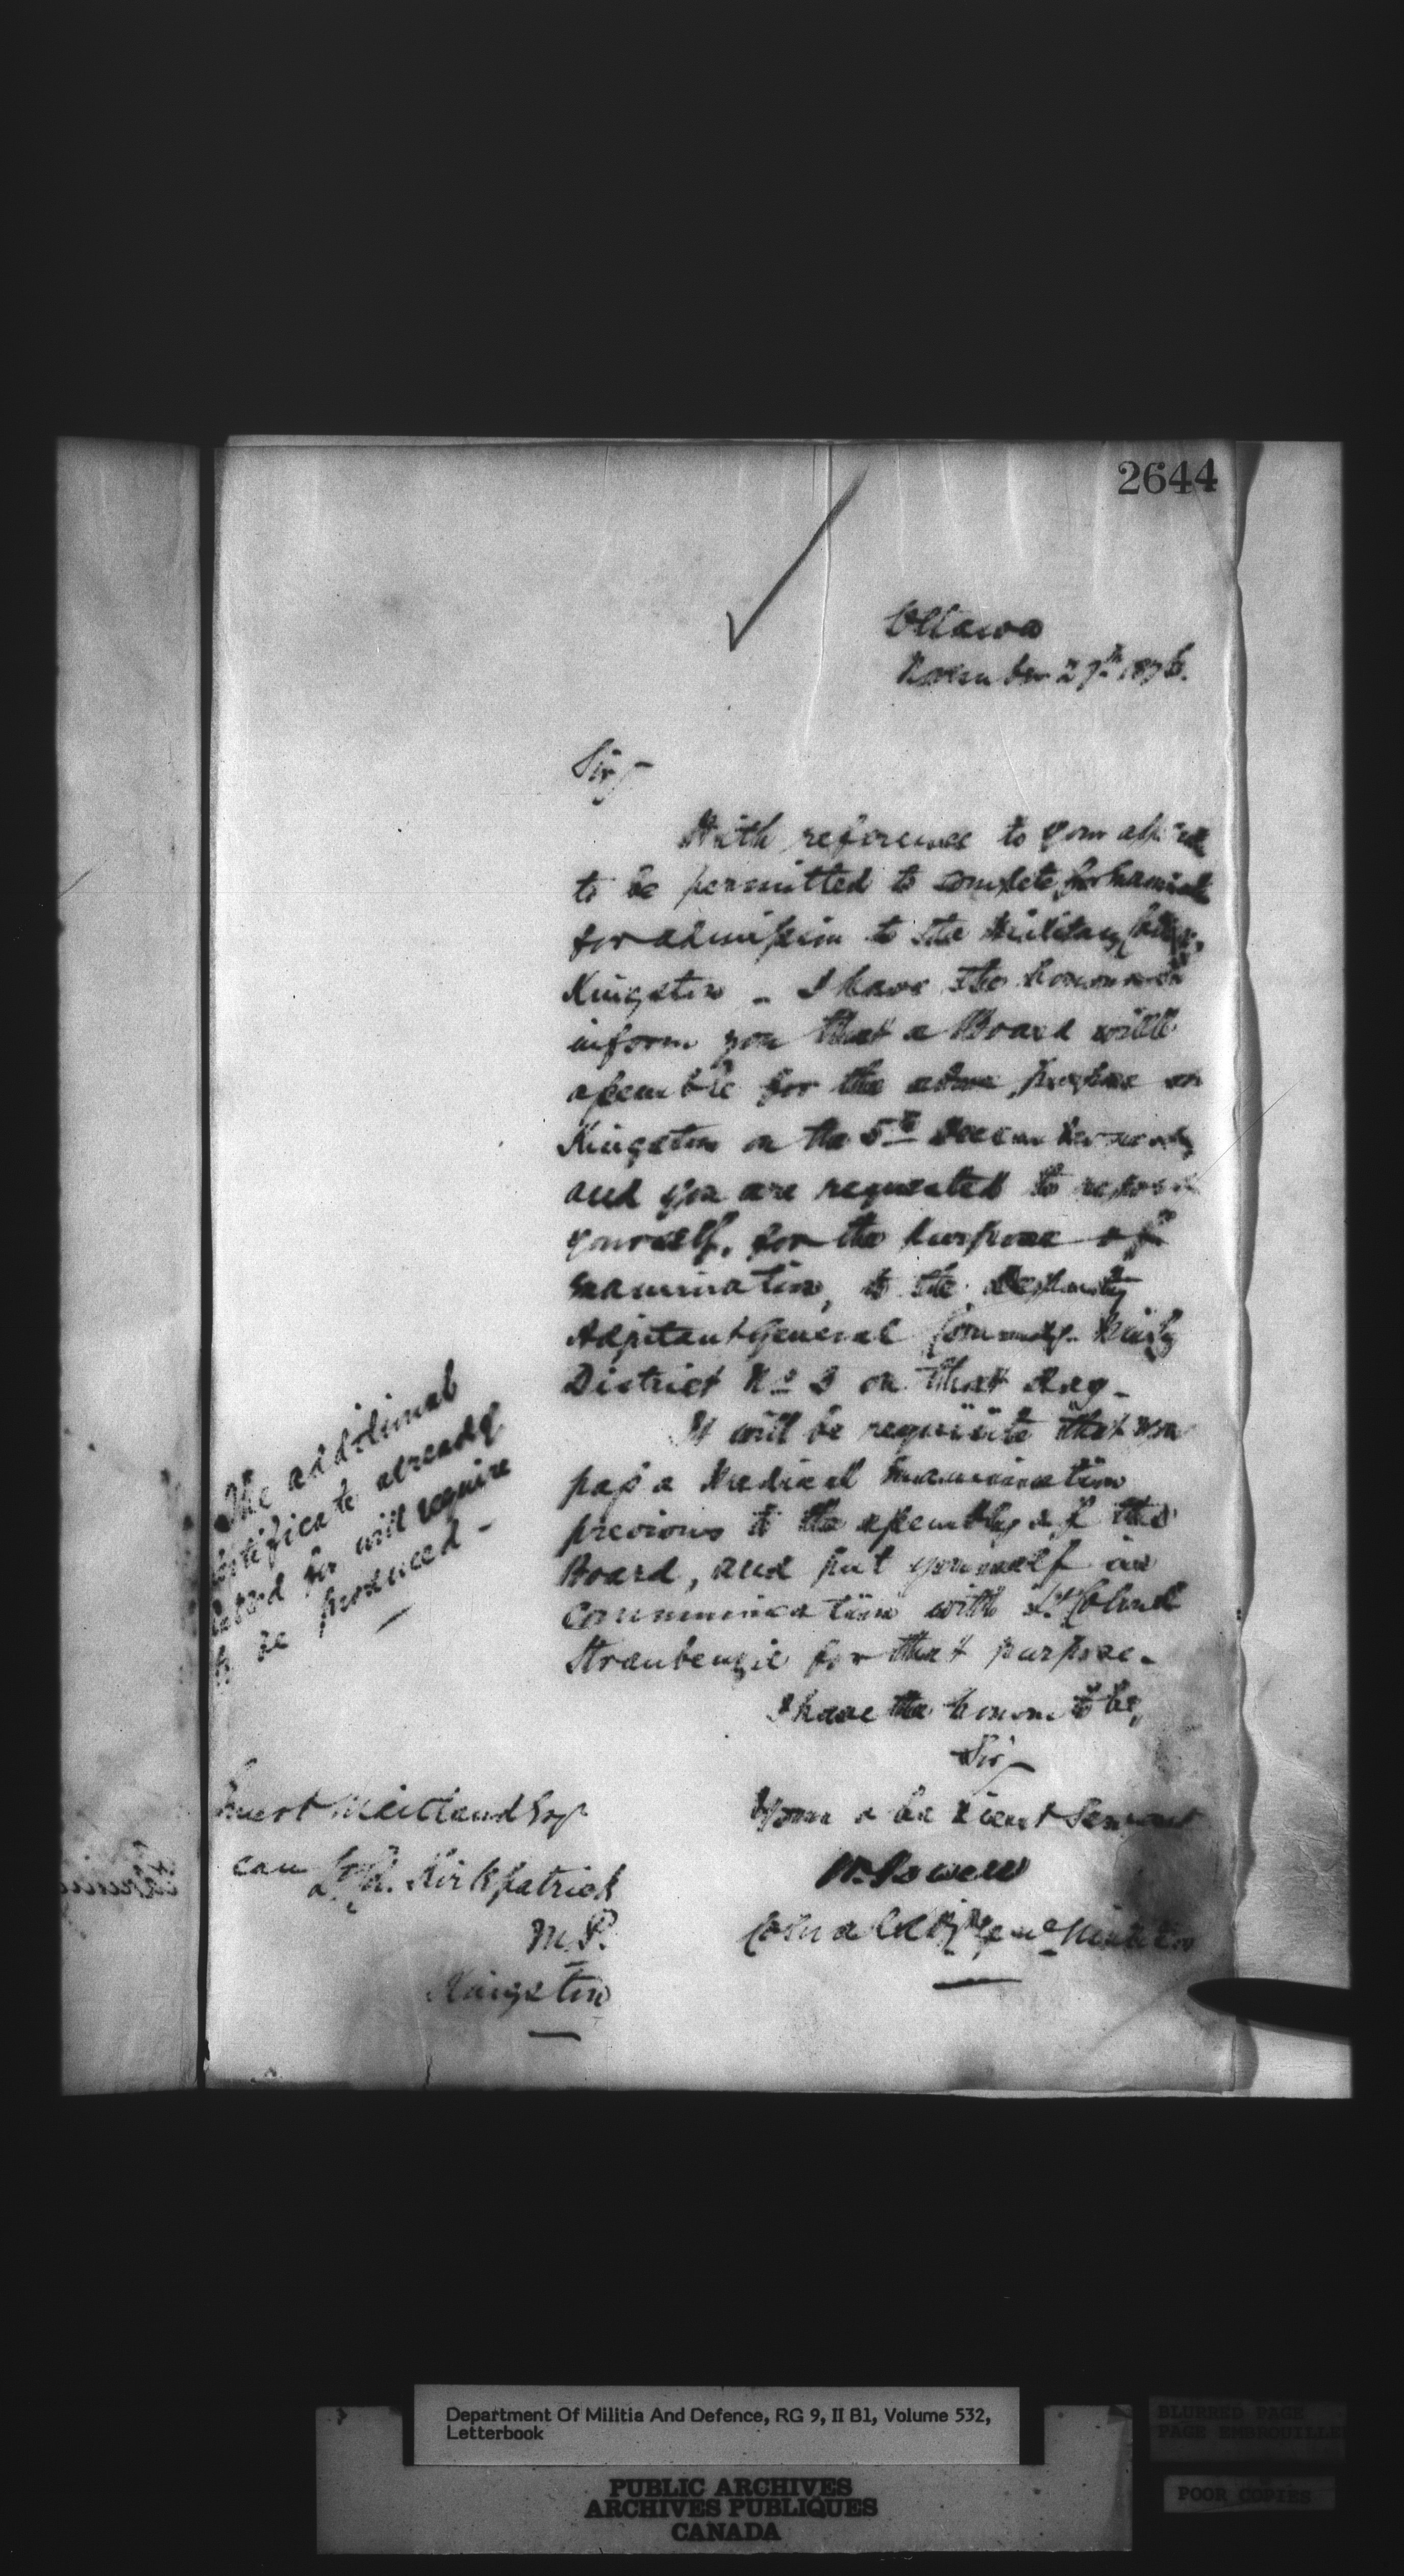 2644
Ottawa
November 27th 1876.
Sir,
With reference to your
to be permitted to compete for
for admission to the Military
Kingston – I have the honour to
inform you that a Board will
assemble for the above purpose
Kingston on the 5th December
and you are requested to report
yourself, for the purpose of
examination, to the Deputy
Adjutant General
District No 3 on that day –
It will be requisite that you
pass a Medical Examination
previous to the assembly of the
Board, and put yourself in
communication with Lt Colonel
Straubenzie for that purpose.
The additional
certificate already
for will require
to be produced –
I have the honour to be,
Sir,
Your obedient Servant
W. Powell
Colonel
Maitland Esqr
care
Kirkpatrick
M.P.
Kingston
Department Of Militia And Defence, RG 9, II B1, Volume 532,
Letterbook
PUBLIC ARCHIVES
ARCHIVES PUBLIQUES
CANADA
BLURRED PAGE
PAGE EMBROUILLEE
POOR COPIES